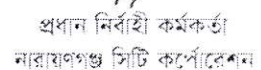 প্রধান নির্বাহী কর্মকর্তা
নারায়ণগঞ্জ সিটি কর্পোরেশন